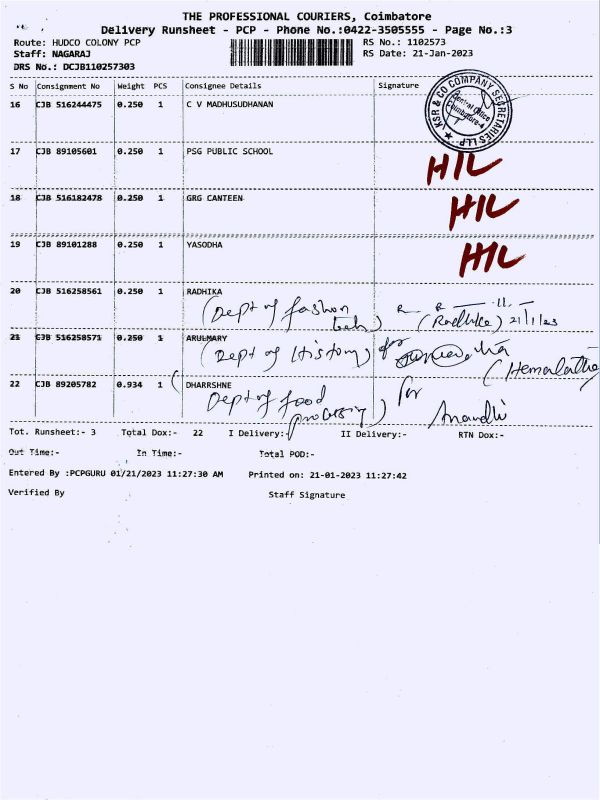 THE PROFESSIONAL COURIERS, Coimbatore
Delivery Runsheet - PCP - Phone No.:0422-3505555 - Page No.:3
Route: HUDCO COLONY PCP RS No.: 1102573
Staff: NAGARAJ RS Date: 21-Jan-2023
DRS No.: DCJB110257303
S No Consignment No Weight PCS Consignee Details Signature
16 CJB 516244475 0.250 1 C V MADHUSUDHANAN
KSR & CO COMPANY SECRETARIES LLP
Central Office
Coimbatore-4
17 CJB 89105601 0.250 1 PSG PUBLIC SCHOOL
H/L
18 CJB 516182478 0.250 1 GRG CANTEEN
H/L
19 CJB 89101288 0.250 1 YASODHA
H/L
20 CJB 516258561 0.250 1 RADHIKA
(Dept of fashon tech) (Radhika) 21/1/23
21 CJB 516258571 0.250 1 ARULMARY
(Dept of History) for
(Hemalatha
22 CJB 89205782 0.934 1 DHARRSHNE
(Dept of food processing) for
Anandhi
Tot. Runsheet:- 3 Total Dox:- 22 I Delivery:- II Delivery:- RTN Dox:-
Out Time:- In Time:- Total POD:-
Entered By :PCPGURU 01/21/2023 11:27:30 AM Printed on: 21-01-2023 11:27:42
Verified By Staff Signature